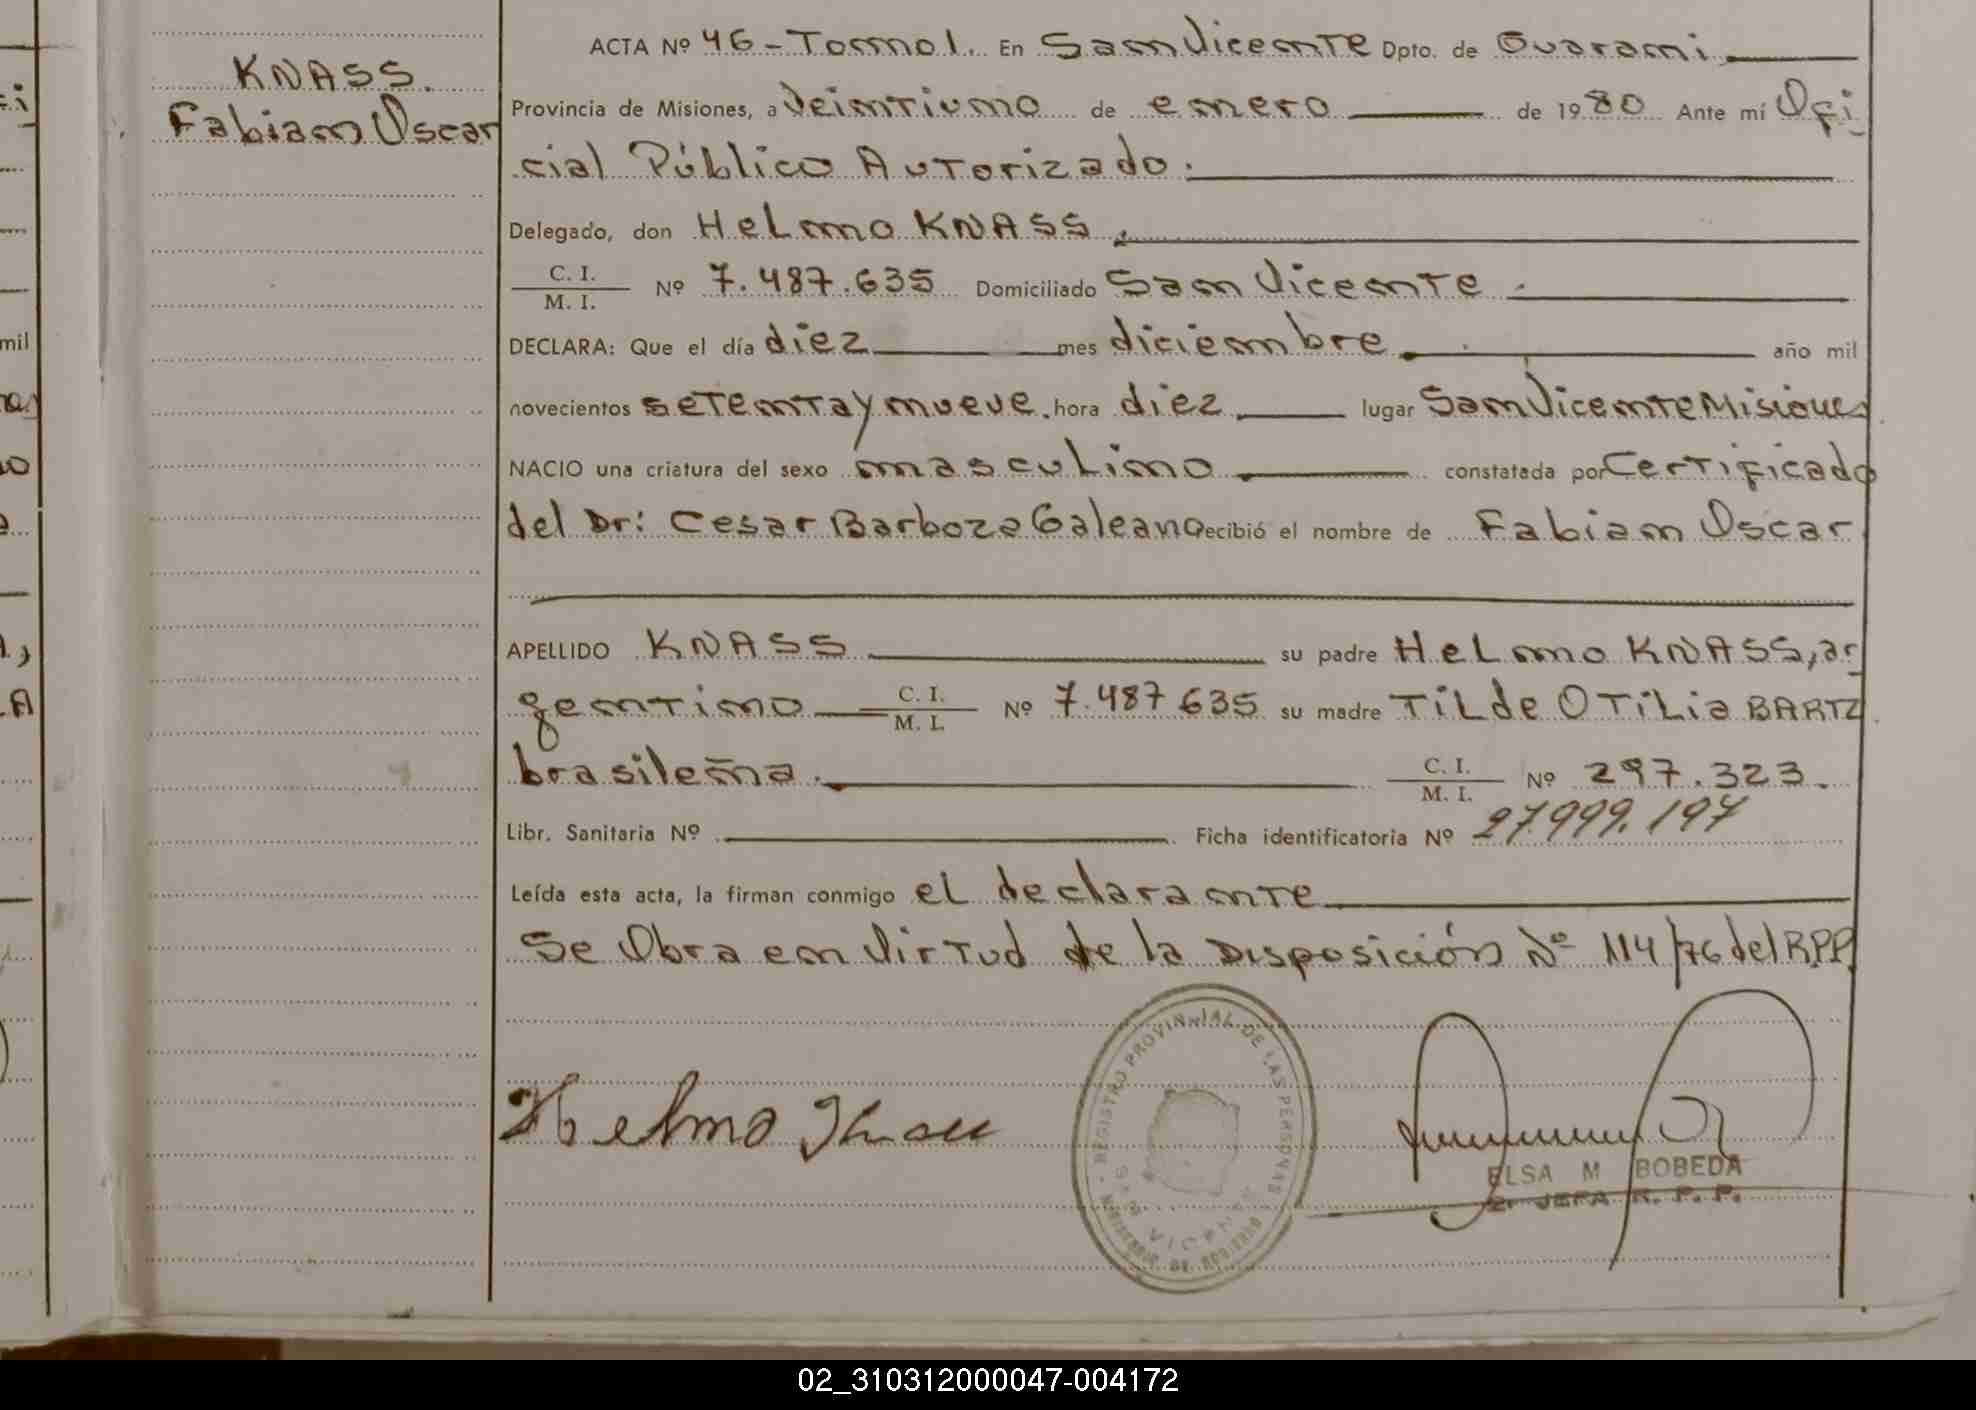 KNASS.
Fabian Oscar
ACTA Nº 46 - Tomo 1. En San Vicente Dpto. de Guarani
Provincia de Misiones, a Veintiuno de enero de 1980 Ante mí Ofi
cial Público Autorizado.
Delegado, don Helmo KNASS.
C. I.
M. I. Nº 7.487.635 Domiciliado San Vicente.
DECLARA: Que el día diez mes diciembre año mil
novecientos setenta y nueve. hora diez lugar San Vicente Misiones
NACIO una criatura del sexo masculino constatada por Certificado
del Dr: Cesar Barboza Galeano recibió el nombre de Fabian Oscar
APELLIDO KNASS su padre Helmo KNASS, ar
gentino C. I. M. I. Nº 7.487 635 su madre Tilde Otilia BARTZ
brasileña. C. I. M. I. Nº 297.323.
Libr. Sanitaria Nº Ficha identificatoria Nº 27.999.197
Leída esta acta, la firman conmigo el declarante
Se Obra en Virtud de la Disposición Nº 114/76 del R.P.P.
REGISTRO PROVINCIAL DE LAS PERSONAS
MINISTERIO DE GOBIERNO
Helmo Knass
ELSA M BOBEDA
2. JEFA R. P. P.
mil
02_310312000047-004172